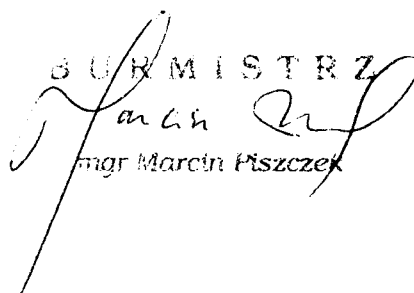 BURMISTRZ
Marcin
mgr Marcin Piszczek